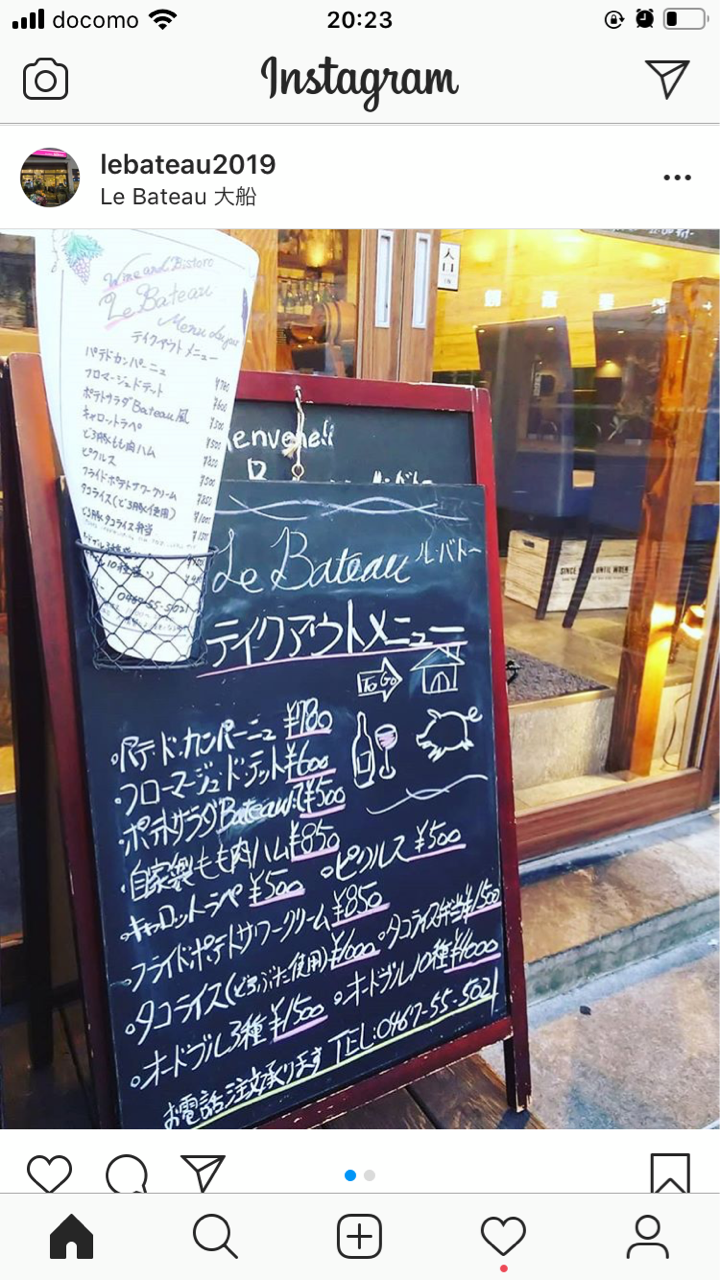 docomo
20:23
Instagram
lebateau2019
Le Bateau 大船
Wine and Bistoro
Le Bateau
テイクアウトメニュー
パテドカンパーニュ
フロマージュドテット ¥600
ポテトサラダBateau風 ¥500
キャロットラペ ¥500
どろ豚もも肉ハム
ピクルス ¥500
フライドポテトサワークリーム
タコライス(どろ豚使用)
どろ豚タコライス弁当
0467-55-5021
入口
IN
Le Bateau ル・バトー
テイクアウトメニュー
To Go
・パテ・ド・カンパーニュ ¥780
・フロマージュ・ド・テット ¥600
・ポテトサラダBateau風 ¥500
・自家製もも肉ハム ¥850
・ピクルス ¥500
・キャロットラペ ¥500
・フライドポテトサワークリーム ¥850
・タコライス弁当 ¥1500
・タコライス(どろぶた使用) ¥1000
・オードブル3種 ¥1500
・オードブル10種 ¥4000
お電話注文承ります TEL:0467-55-5021